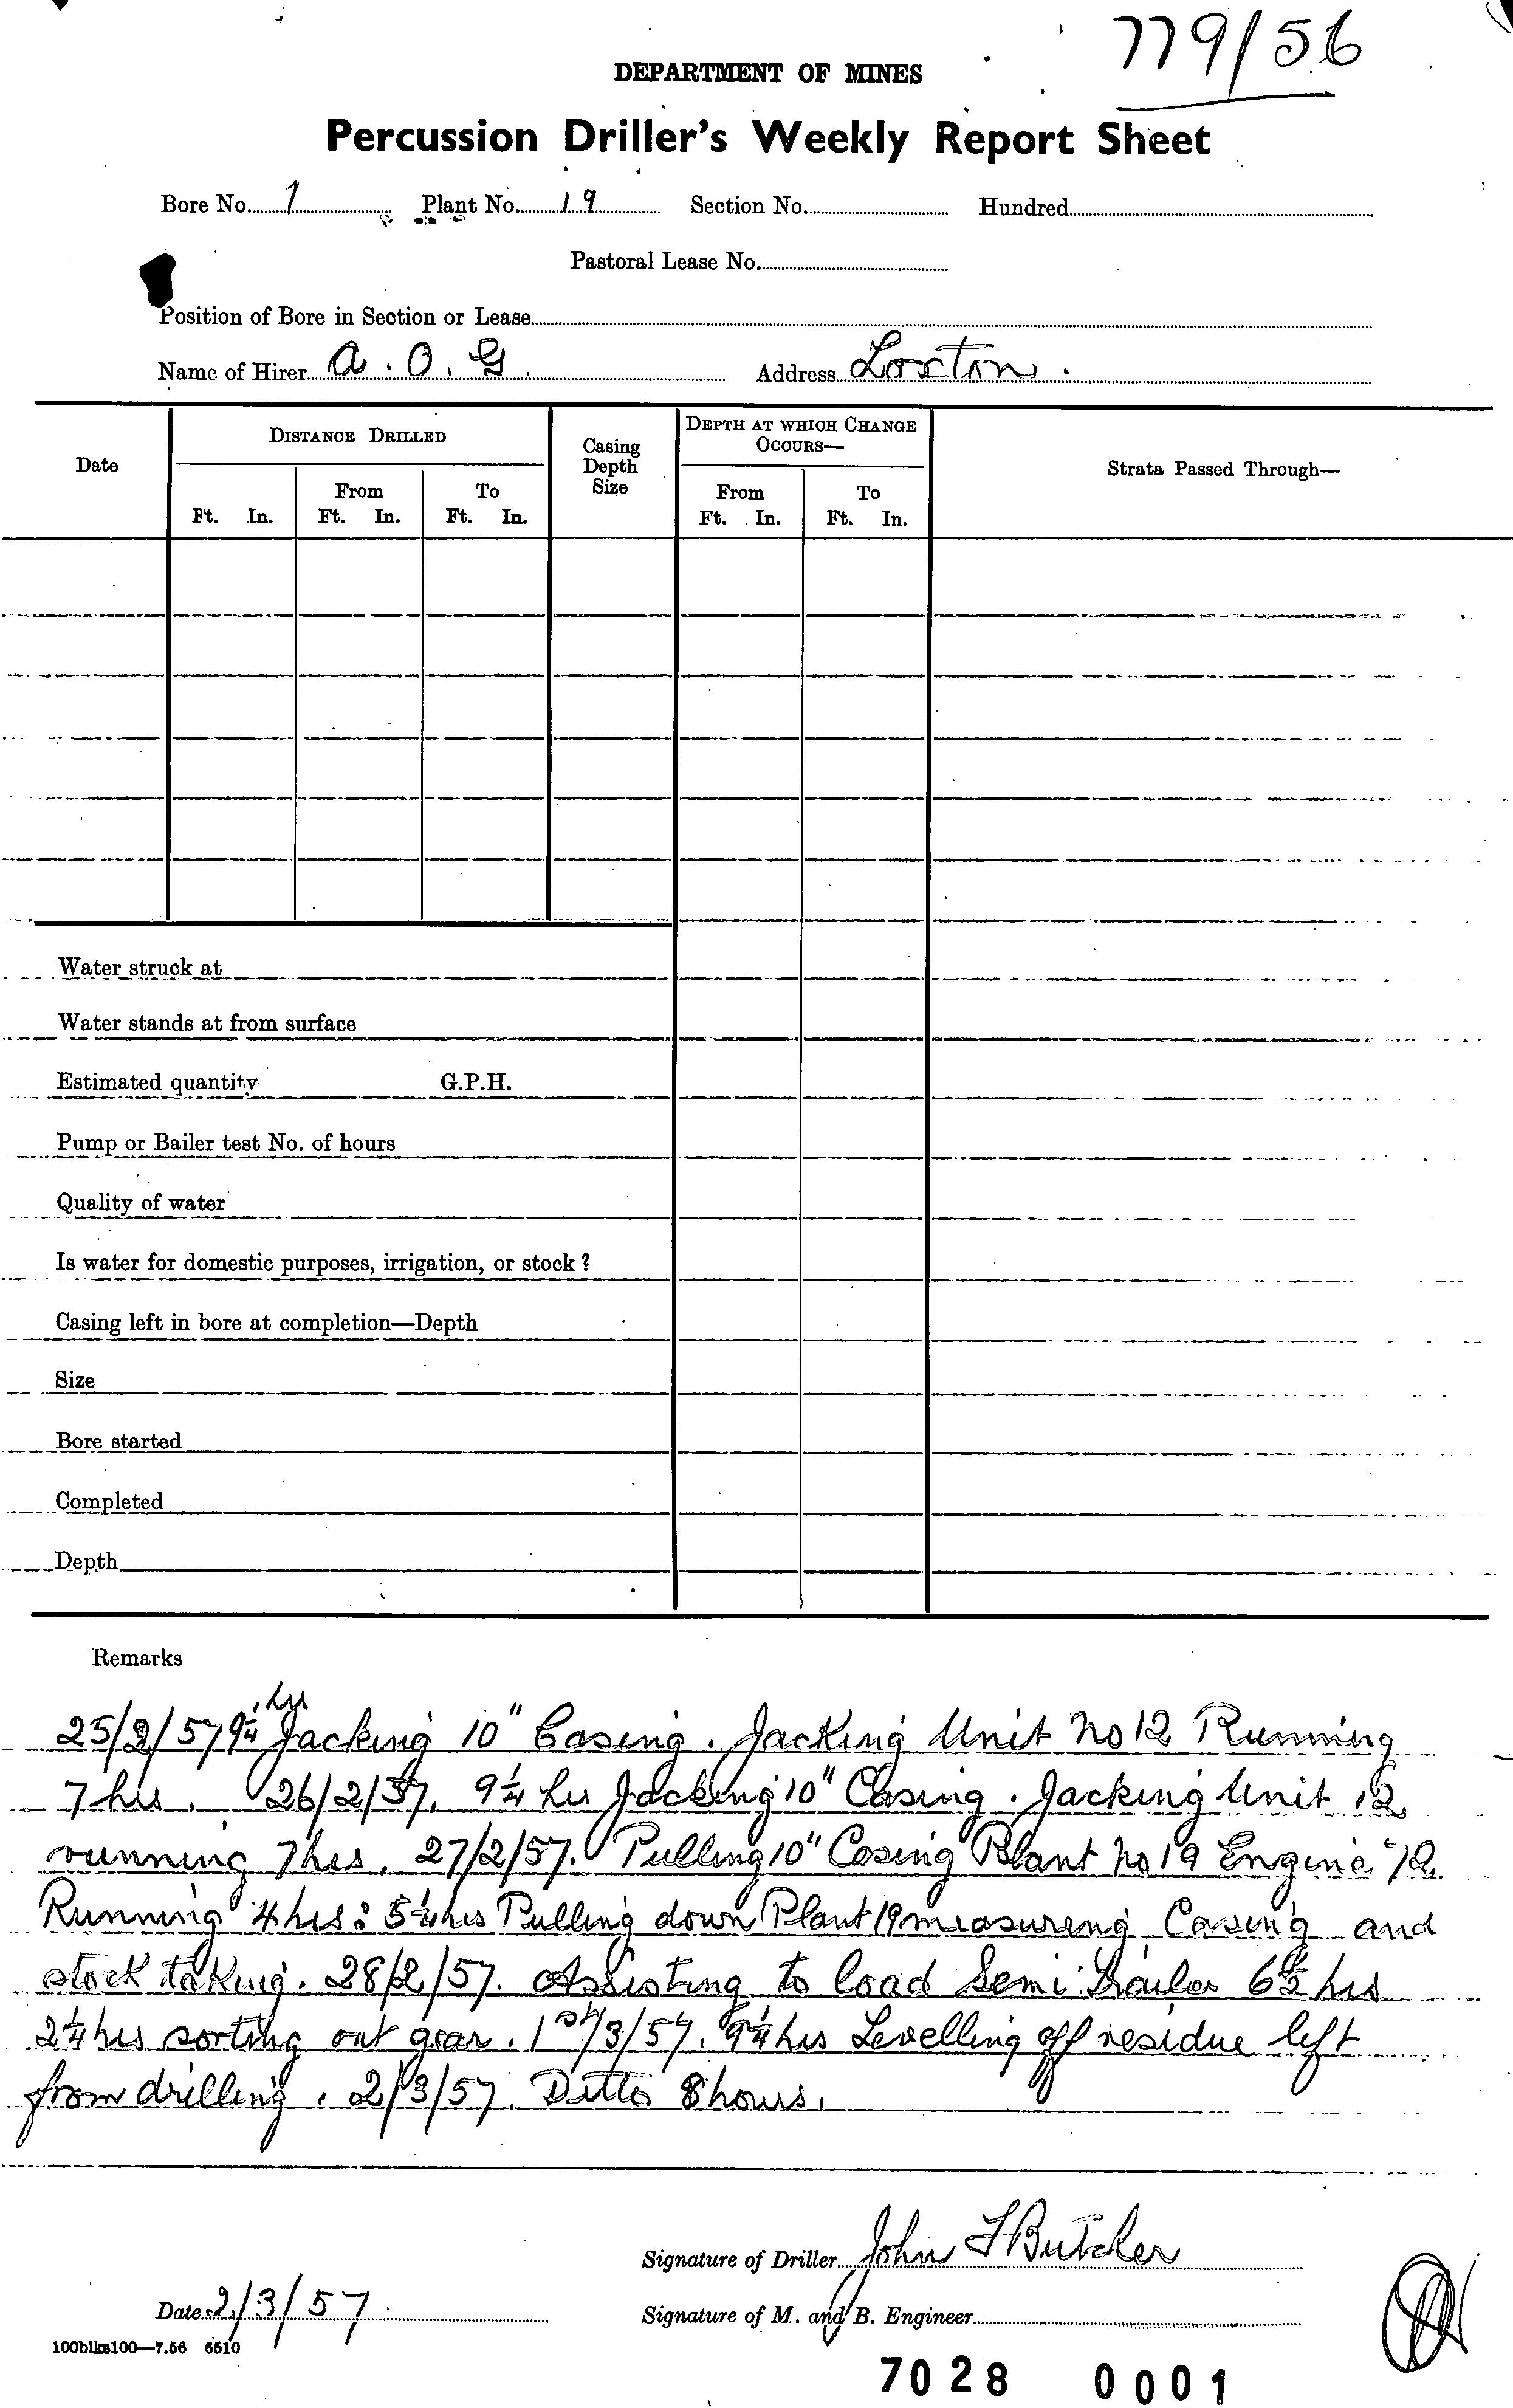 779/56
DEPARTMENT OF MINES
Percussion Driller's Weekly Report Sheet
Bore No. 1 Plant No. 19 Section No. Hundred
Pastoral Lease No.
Position of Bore in Section or Lease
Name of Hirer A. O. G. Address Loxton.
Date
DISTANCE DRILLED
Ft. In.
From
Ft. In.
To
Ft. In.
Casing
Depth
Size
DEPTH AT WHICH CHANGE
OCCURS—
From
Ft. In.
To
Ft. In.
Strata Passed Through—
Water struck at
Water stands at from surface
Estimated quantity G.P.H.
Pump or Bailer test No. of hours
Quality of water
Is water for domestic purposes, irrigation, or stock ?
Casing left in bore at completion—Depth
Size
Bore started
Completed
Depth
Remarks
25/2/57 9¼ hrs Jacking 10" Casing. Jacking Unit No 12 Running
7 hrs. 26/2/57. 9¼ hrs Jacking 10" Casing. Jacking Unit 12
running 7 hrs. 27/2/57. Pulling 10" Casing Plant No 19 Engine
Running 4 hrs: 5¼ hrs Pulling down Plant 19 measuring Casing and
stock taking. 28/2/57. Assisting to load Semi Trailer 6½ hrs
2¼ hrs sorting out gear. 1st/3/57. 9¼ hrs Levelling off residue left
from drilling. 2/3/57. Ditto 8 hours.
Signature of Driller John F Butcher
Date 2/3/57. Signature of M. and B. Engineer
100blks100—7.56 6510
7028 0001